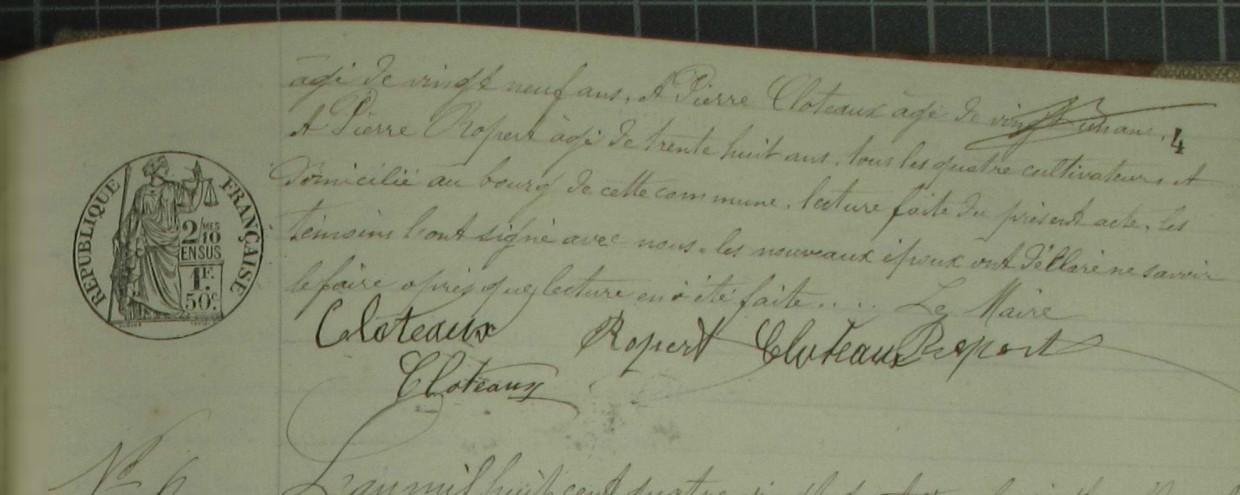 âgé de vingt neuf ans, et Pierre Cloteaux âgé de vingt un ans,
4
et Pierre Ropert âgé de trente huit ans, tous les quatre cultivateurs et
domicilié au bourg de cette commune. lecture faite du présent acte, les
témoins l'ont signé avec nous. les nouveaux époux ont déclaré ne savoir
le faire après que lecture en à été faite.... Le Maire
Cloteaux Ropert Cloteaux Ropert
Cloteaux
RÉPUBLIQUE FRANÇAISE
2/10MES
EN SUS
1F.
50c
No 6
L'an mil huit cent quatre